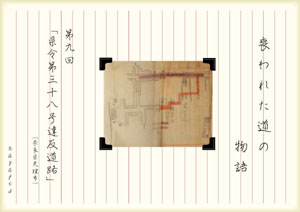 喪われた道の
物語
第九回
「県令第三十八号違反道路」
(奈良県天理市)